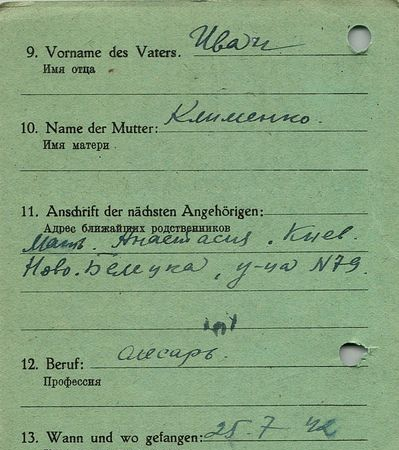 9. Vorname des Vaters. Иван
Имя отца
10. Name der Mutter: Клименко.
Имя матери
11. Anschrift der nächsten Angehörigen:
Адрес ближайших родственников
Мать. Анастасия. Киев.
Ново. Белецка, у-ца N79.
12. Beruf: слесарь.
Профессия
13. Wann und wo gefangen: 25. 7 42